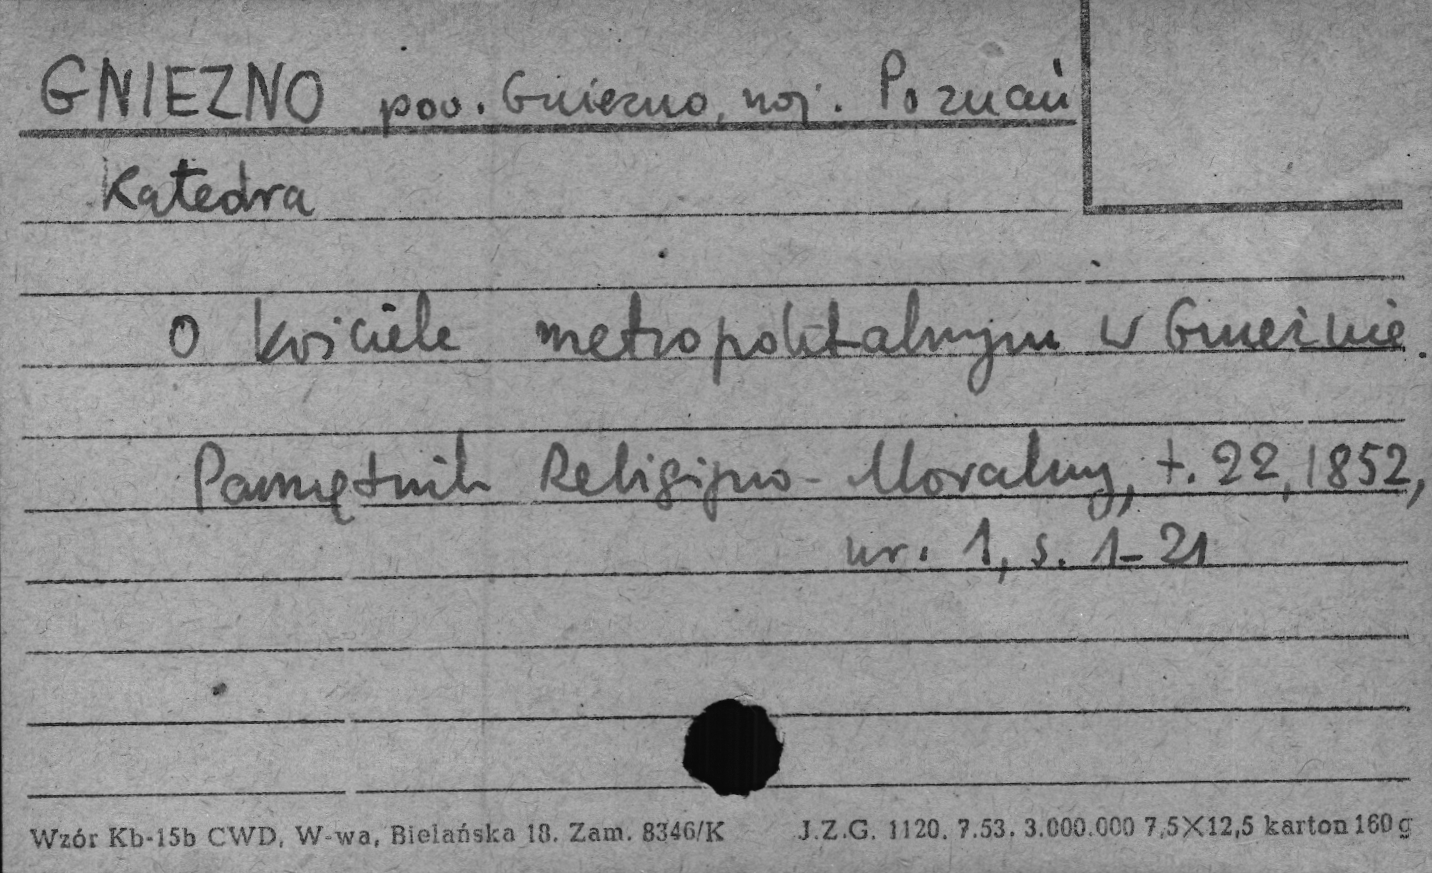 GNIEZNO pow. Gniezno, woj. Poznań
Katedra
O kościele metropolitalnym w Gnieźnie.
Pamiętnik Religijno-Moralny, t. 22, 1852,
nr. 1, s. 1-21
Wzór Kb-15b CWD, W-wa, Bielańska 18. Zam. 8346/K J.Z.G. 1120. 7.53. 3.000.000 7,5×12,5 karton 160 g